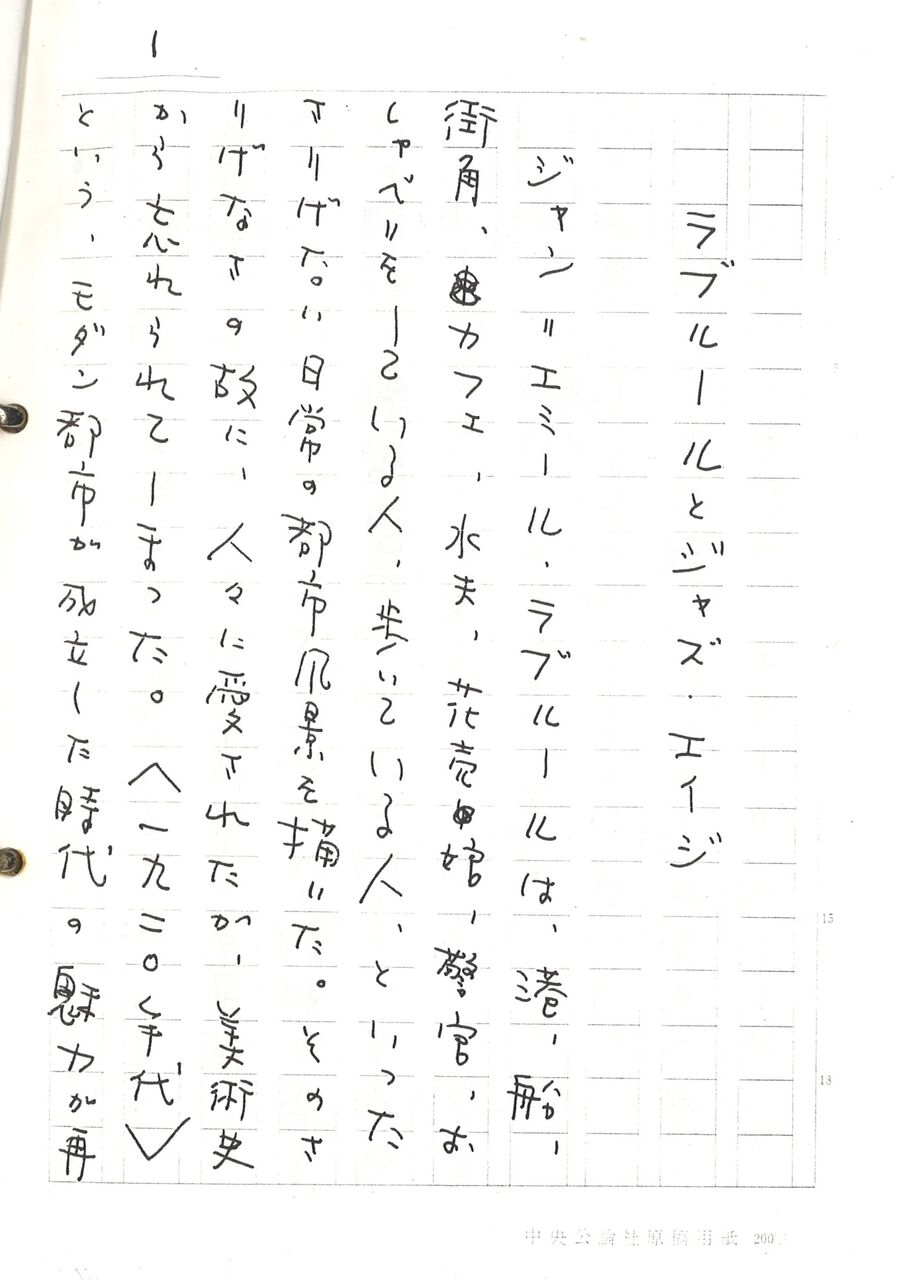 1
ラブルールとジャズ・エイジ
ジャン＝エミール・ラブルールは、港、船、
街角、カフェ、水夫、花売娘、警官、お
しゃべりをしている人、歩いている人、といった
さりげない日常の都市風景を描いた。そのさ
りげなさの故に、人々に愛されたが、美術史
から忘れられてしまった。〈一九二〇年代〉
という、モダン都市が成立した時代の魅力が再
15
18
中央公論社原稿用紙 200